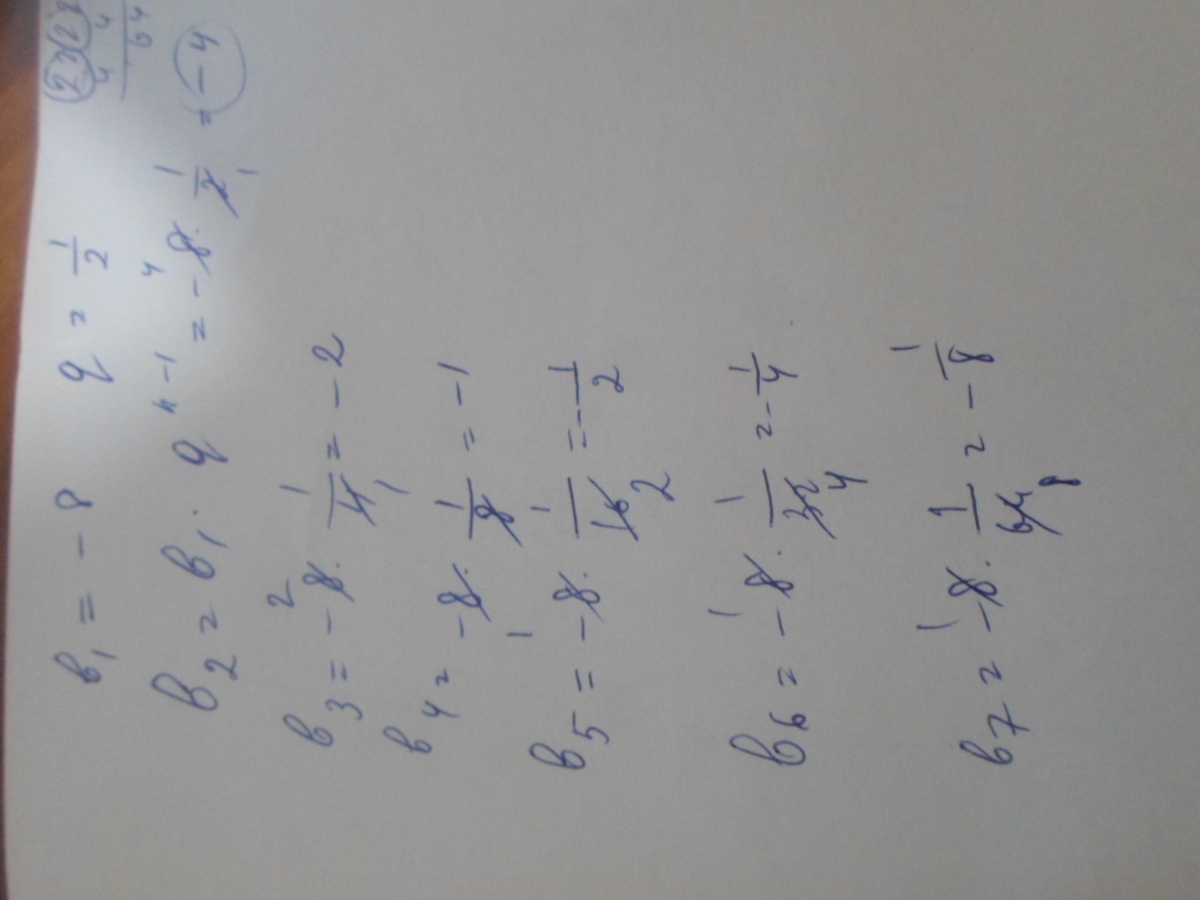 b₁ = -8   q = 1/2
b₂ = b₁ · qⁿ⁻¹ = -8 · 1/2 = -4
b₃ = -8 · 1/4 = -2
b₄ = -8 · 1/8 = -1
b₅ = -8 · 1/16 = -1/2
b₆ = -8 · 1/32 = -1/4
b₇ = -8 · 1/64 = -1/8